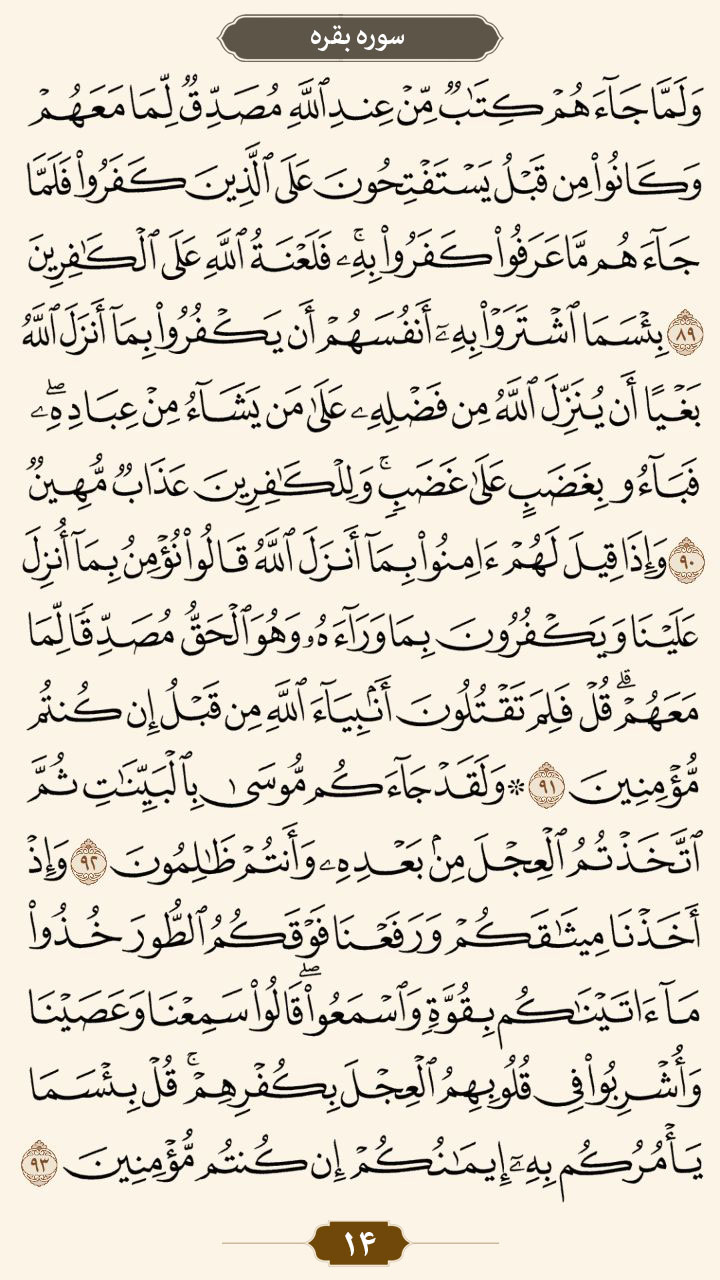 سوره بقره
وَلَمَّا جَآءَهُمۡ كِتَٰبٞ مِّنۡ عِندِ ٱللَّهِ مُصَدِّقٞ لِّمَا مَعَهُمۡ
وَكَانُواْ مِن قَبۡلُ يَسۡتَفۡتِحُونَ عَلَى ٱلَّذِينَ كَفَرُواْ فَلَمَّا
جَآءَهُم مَّا عَرَفُواْ كَفَرُواْ بِهِۦۚ فَلَعۡنَةُ ٱللَّهِ عَلَى ٱلۡكَٰفِرِينَ
۸۹ بِئۡسَمَا ٱشۡتَرَوۡاْ بِهِۦٓ أَنفُسَهُمۡ أَن يَكۡفُرُواْ بِمَآ أَنزَلَ ٱللَّهُ
بَغۡيًا أَن يُنَزِّلَ ٱللَّهُ مِن فَضۡلِهِۦ عَلَىٰ مَن يَشَآءُ مِنۡ عِبَادِهِۦۖ
فَبَآءُو بِغَضَبٍ عَلَىٰ غَضَبٖۚ وَلِلۡكَٰفِرِينَ عَذَابٞ مُّهِينٞ
۹۰ وَإِذَا قِيلَ لَهُمۡ ءَامِنُواْ بِمَآ أَنزَلَ ٱللَّهُ قَالُواْ نُؤۡمِنُ بِمَآ أُنزِلَ
عَلَيۡنَا وَيَكۡفُرُونَ بِمَا وَرَآءَهُۥ وَهُوَ ٱلۡحَقُّ مُصَدِّقٗا لِّمَا
مَعَهُمۡۗ قُلۡ فَلِمَ تَقۡتُلُونَ أَنۢبِيَآءَ ٱللَّهِ مِن قَبۡلُ إِن كُنتُم
مُّؤۡمِنِينَ ۹۱ ۞وَلَقَدۡ جَآءَكُم مُّوسَىٰ بِٱلۡبَيِّنَٰتِ ثُمَّ
ٱتَّخَذۡتُمُ ٱلۡعِجۡلَ مِنۢ بَعۡدِهِۦ وَأَنتُمۡ ظَٰلِمُونَ ۹۲ وَإِذۡ
أَخَذۡنَا مِيثَٰقَكُمۡ وَرَفَعۡنَا فَوۡقَكُمُ ٱلطُّورَ خُذُواْ
مَآ ءَاتَيۡنَٰكُم بِقُوَّةٖ وَٱسۡمَعُواْۖ قَالُواْ سَمِعۡنَا وَعَصَيۡنَا
وَأُشۡرِبُواْ فِي قُلُوبِهِمُ ٱلۡعِجۡلَ بِكُفۡرِهِمۡۚ قُلۡ بِئۡسَمَا
يَأۡمُرُكُم بِهِۦٓ إِيمَٰنُكُمۡ إِن كُنتُم مُّؤۡمِنِينَ ۹۳
۱۴